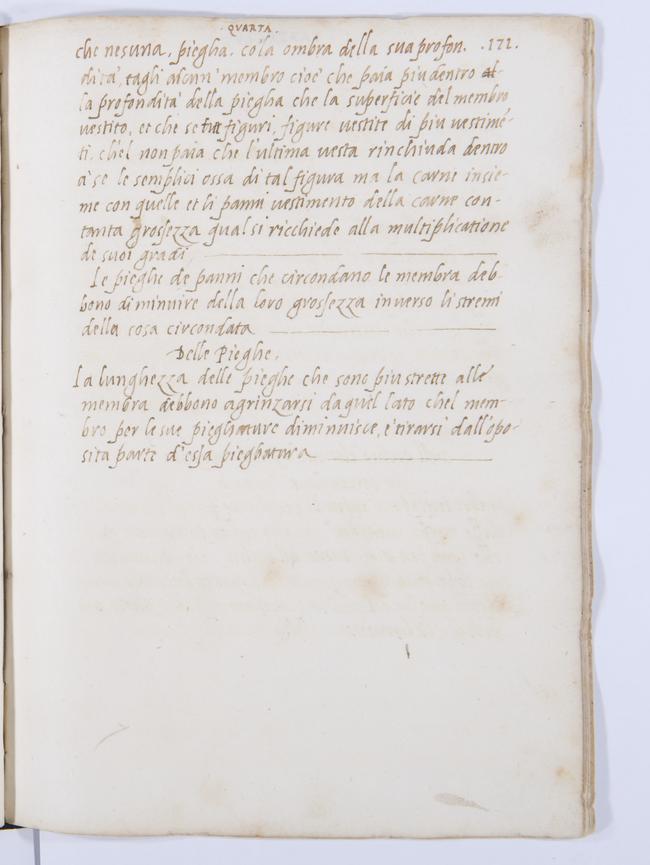 · QVARTA ·
che nesuna, piegha, cõ la ombra della sua profon- .171.
dità, tagli alcun' membro cioè che paia piu dentro al-
la profondità della piegha che la superficie del membro
uestito, et che se figuri, figure uestite di piu uestimē-
ti, ch'el non paia che l'ultima uesta rinchiuda dentro
a se le semplici ossa di tal figura ma la carne insie-
me con quelle et li panni uestimento della carne con-
tanta grossezza qual si ricchiede alla multiplicatione
de suoi gradi
Le pieghe de panni che circondano le membra deb-
bono diminuire della loro grossezza inuerso li stremi
della cosa circondata
Delle Pieghe.
La lunghezza delle pieghe che sono piu strette alle
membra debbono agrinzarsi da quel lato chel mem-
bro per le sue piegliature diminuisce, e tirarsi dall'opo-
sita parte d'essa pieghatura